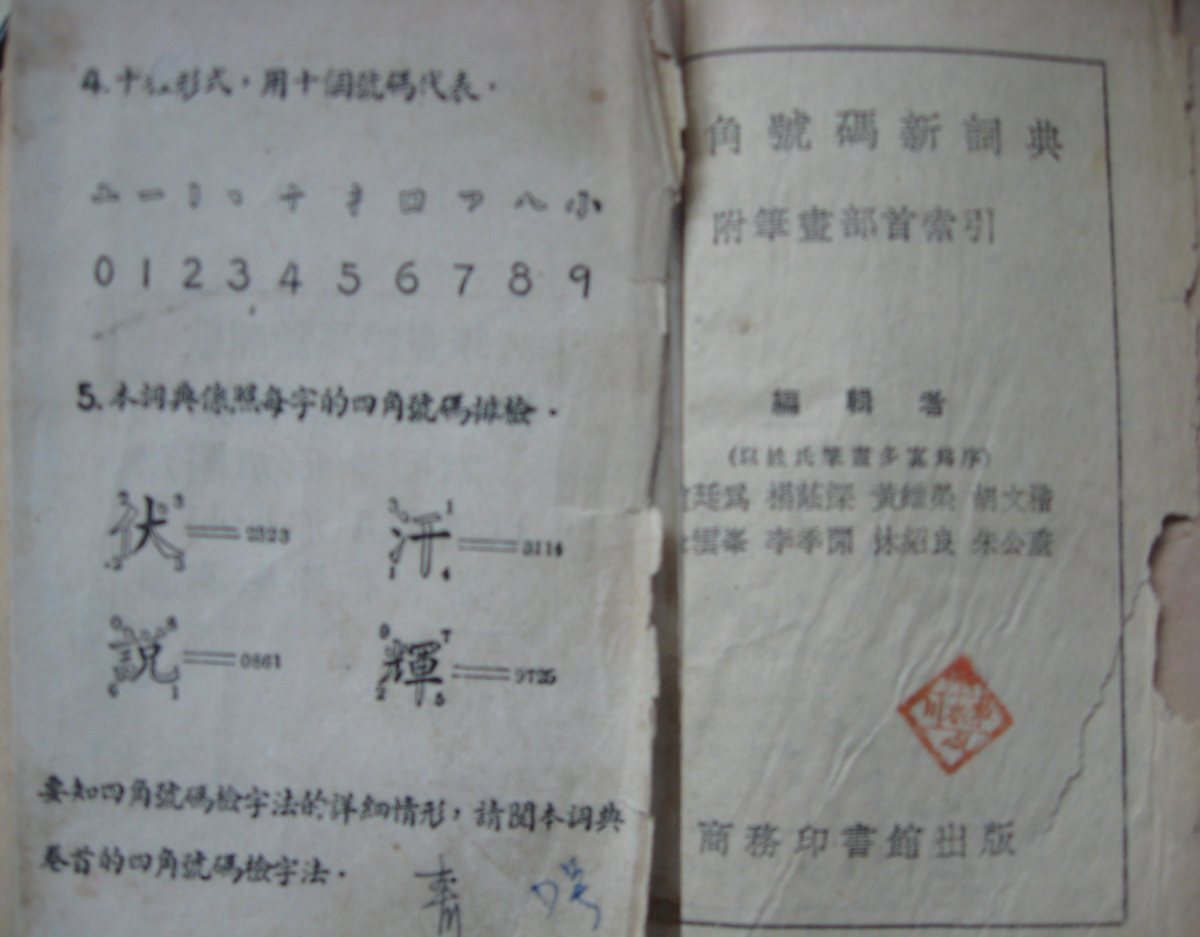 4. 十種形式，用十個號碼代表．
亠 一 丨 丶 十 扌 口 ㄱ 八 小
0 1 2 3 4 5 6 7 8 9
5. 本詞典係照每字的四角號碼排檢．
2 3
伏══2323
2 3
3 1
汗══3114
1 4
0 8
說══0861
6 1
9 7
輝══9725
2 5
要知四角號碼檢字法的詳細情形，請閱本詞典
卷首的四角號碼檢字法．
角號碼新詞典
附筆畫部首索引
編輯者
(以姓氏筆畫多寡為序)
廷爲 楊蔭深 黃維榮 胡文楷
雲峯 李季開 林紹良 朱公垂
商務印書館出版